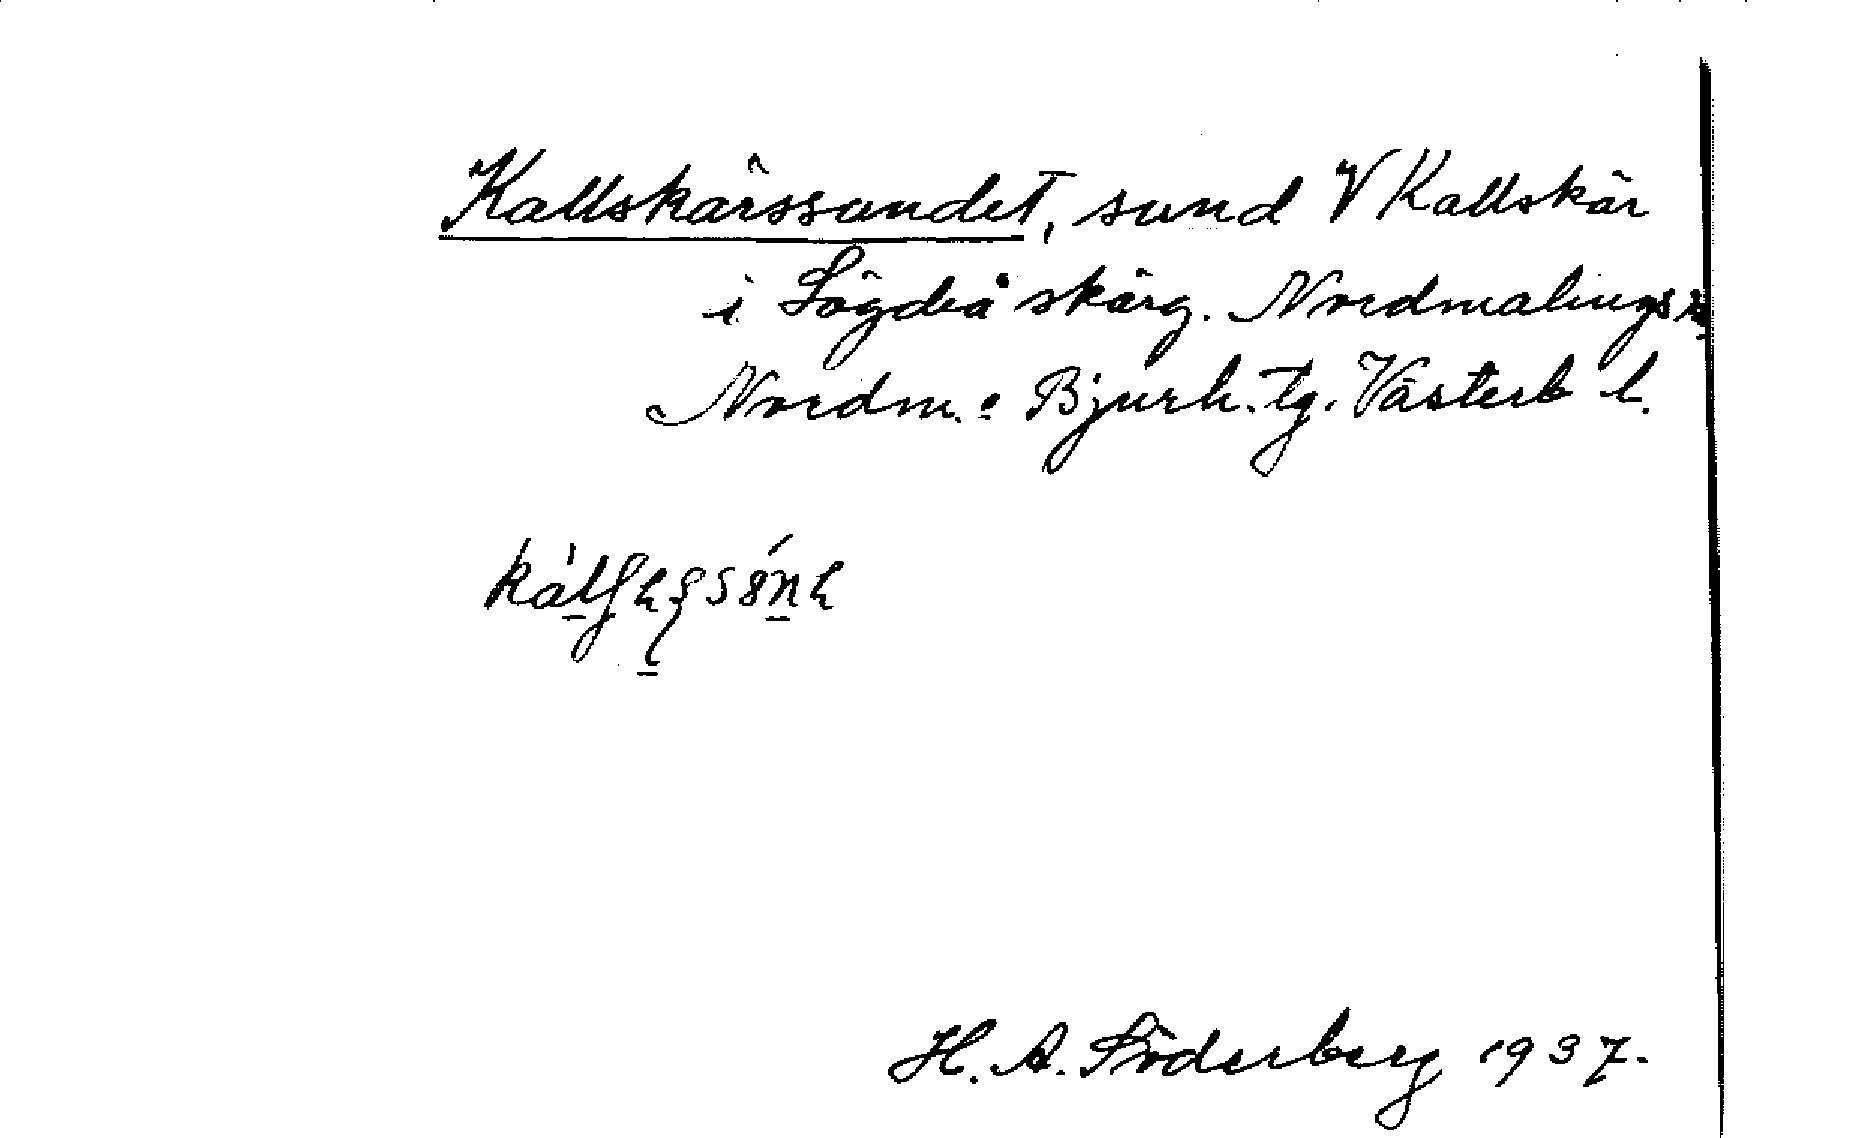 Kallskärssundet, sund V Kallskär
i Lögdeå skärg. Nordmalings s
Nordm. o Bjurh. tg. Västerb l.
H. A. Söderberg 1937.